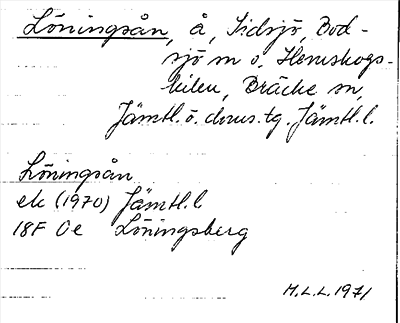 Löningsån, å, Sidsjö, Bod-
sjö m o, Hemskogs-
kilen, Bräcke sn,
Jämtl. ö. doms. tg. Jämtl. l.
Löningsån
ek (1970) Jämtl. l
18F 0e Löningsberg
M.L.L. 1971